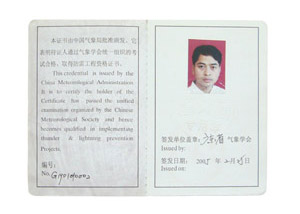 本证书由中国气象局批准颁发，它
表明持证人通过气象学会统一组织的考
试合格，取得防雷工程资格证书。
This credential is issued by the
China Meteorological Administration
It is to certify the holder of the
Certificate has passed the unified
examination organized by the Chinese
Meteorological Society and hence
becomes qualified in implementing
thunder & lightning prevention
Projects.
编号：
No.
签发单位盖章： 气象学会
Issued by:
签发日期： 2005 年 2 月 日
Issued on: